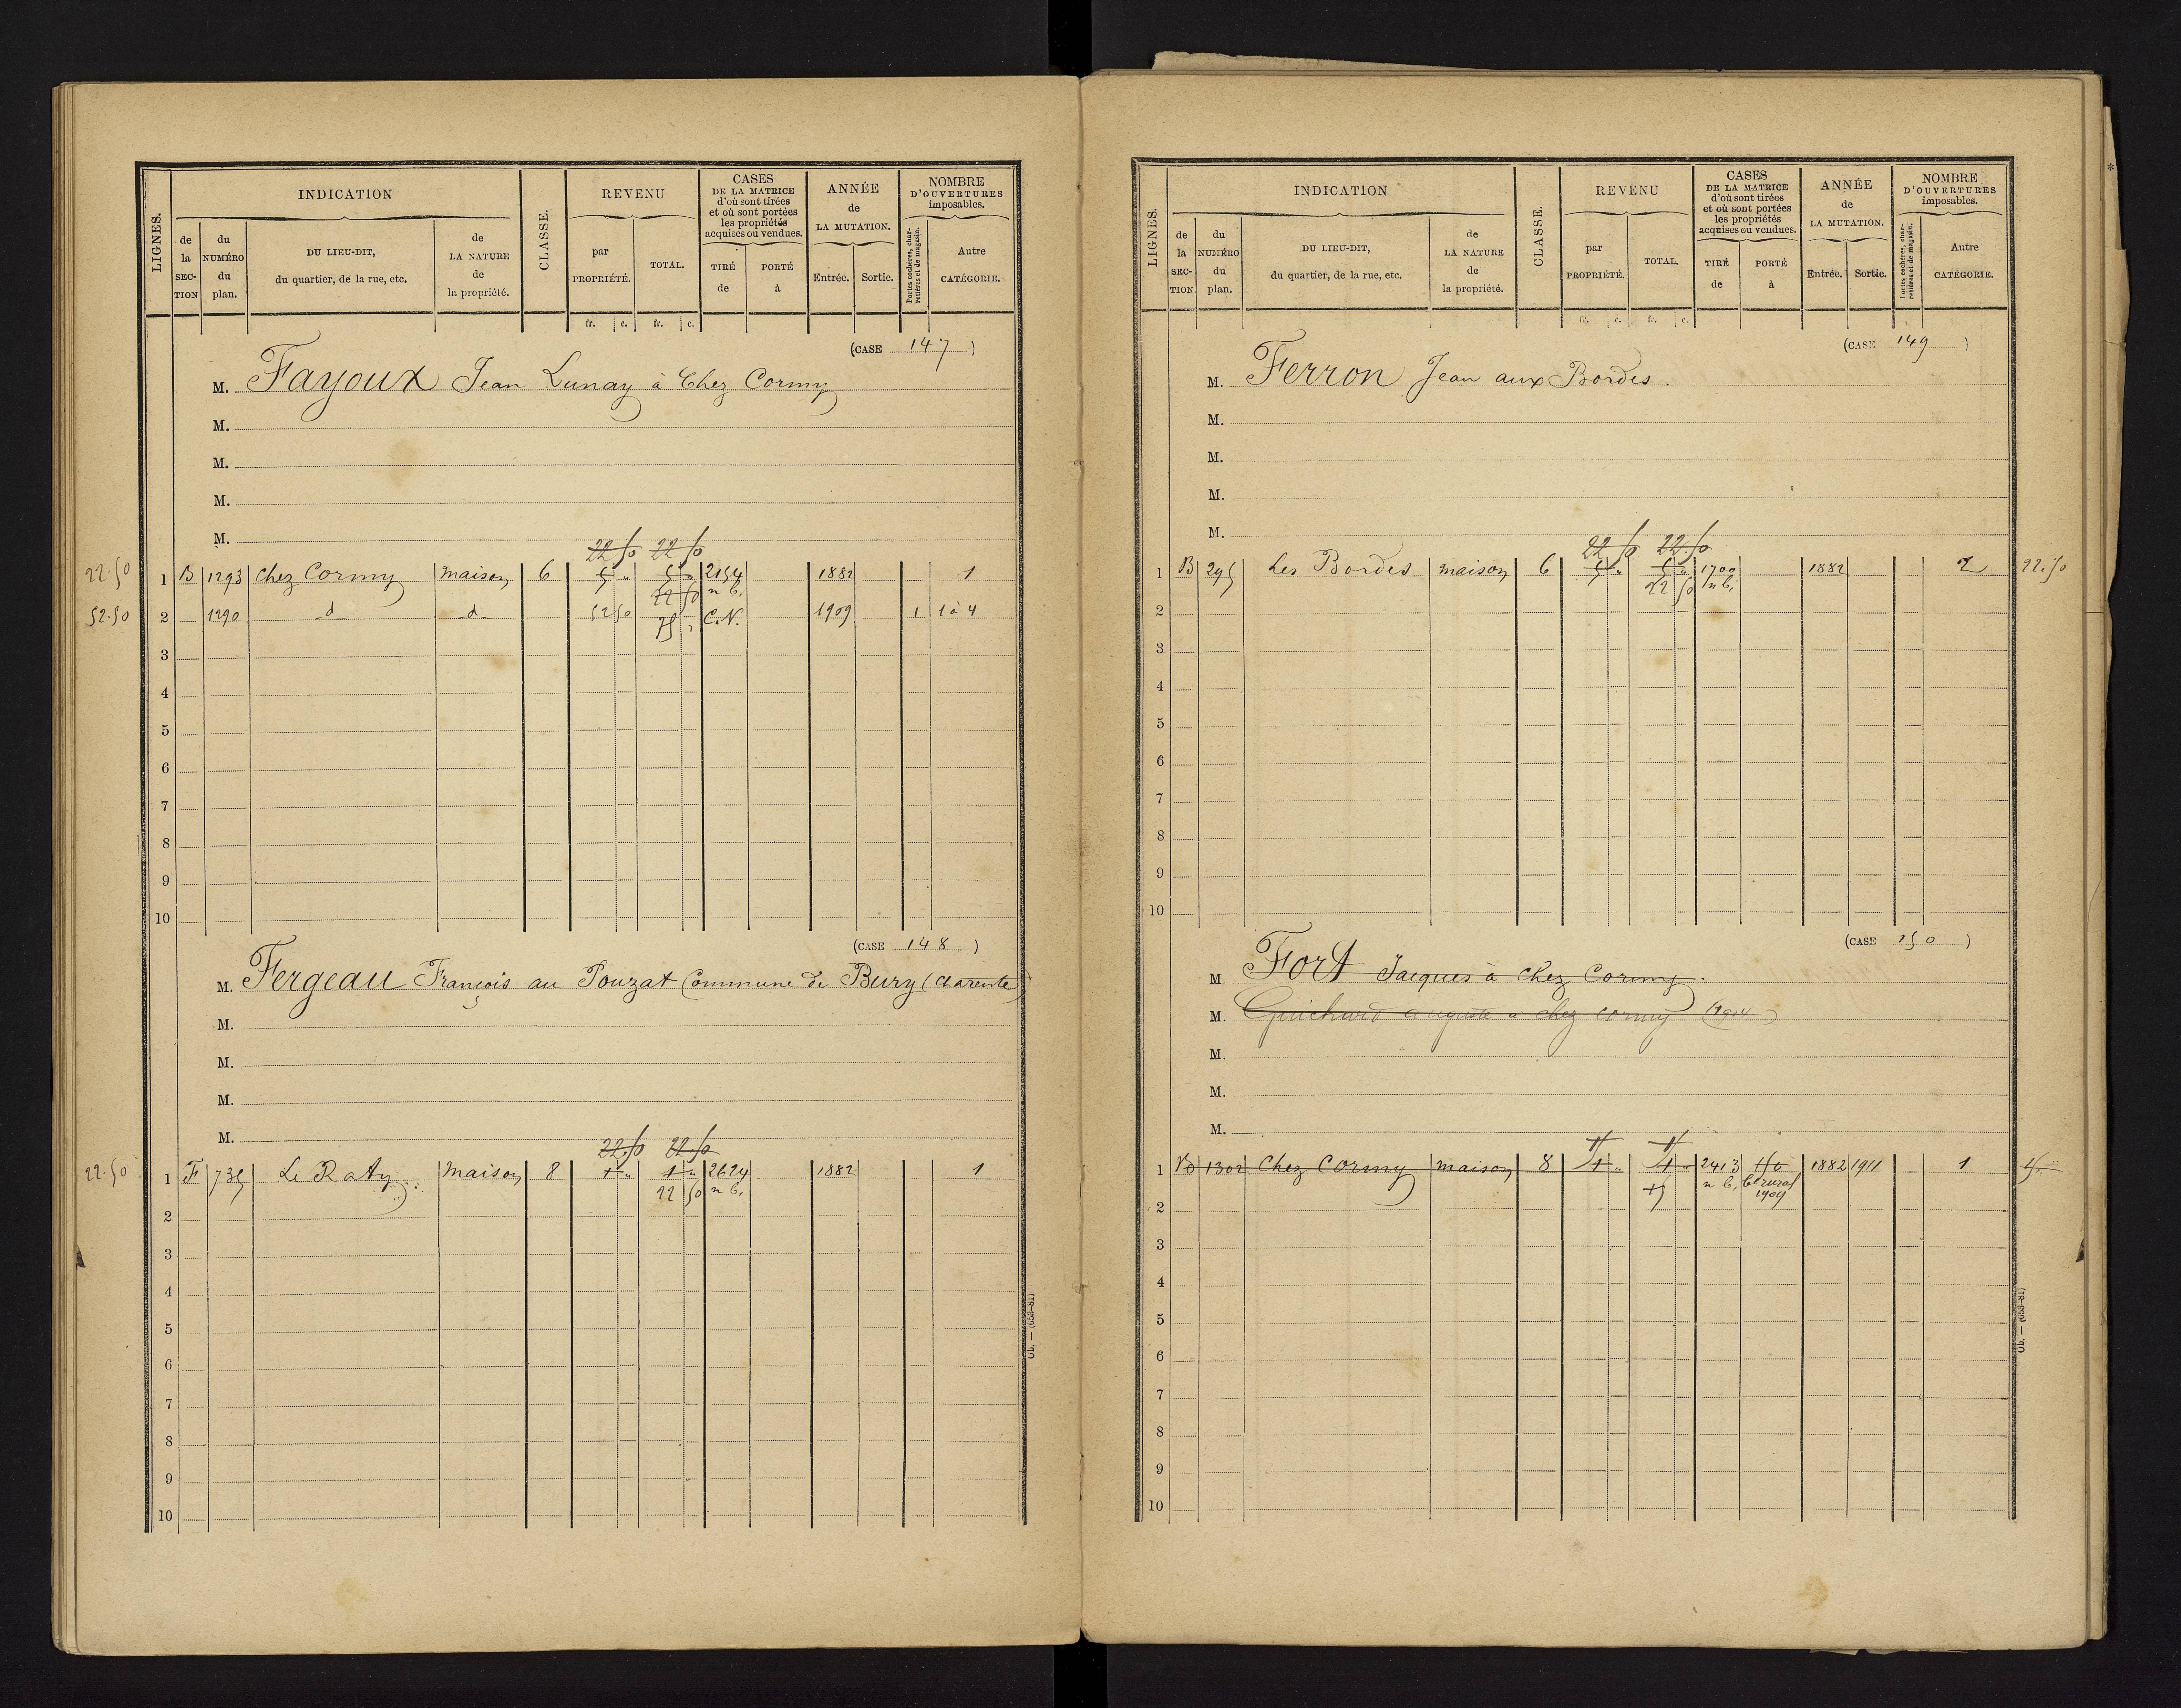 LIGNES. INDICATION CLASSE. REVENU CASES DE LA MATRICE d'où sont tirées et où sont portées les propriétés acquises ou vendues. ANNÉE de LA MUTATION. NOMBRE D'OUVERTURES imposables.
de la SECTION du NUMÉRO du plan. DU LIEU-DIT, du quartier, de la rue, etc. de LA NATURE de la propriété. par PROPRIÉTÉ. TOTAL. TIRÉ de PORTÉ à Entrée. Sortie. Portes cochères, charretières et de magasin. Autre CATÉGORIE.
fr. c. fr. c.
(CASE 147)
M. Fayoux Jean Lunay à Chez Cormy
M.
M.
M.
M.
22 50 22 50
22.50 1 B 1293 Chez Cormy maison 6 5 " 5 " 2154 1882 1
22 50 n b.
52.50 2 1290 d d 52 50 75 " C.N. 1909 1 1 à 4
3
4
5
6
7
8
9
10
(CASE 148)
M. Fergeau François au Pouzat Commune de Bury (Charente)
M.
M.
M.
M.
22.50 22.50
22.50 1 F 735 Le Raty maison 8 1 " 1 " 2624 1882 1
22 50 n b.
2
3
4
5
6
7
8
9
10
Ob. — (653-81)
LIGNES. INDICATION CLASSE. REVENU CASES DE LA MATRICE d'où sont tirées et où sont portées les propriétés acquises ou vendues. ANNÉE de LA MUTATION. NOMBRE D'OUVERTURES imposables.
de la SECTION du NUMÉRO du plan. DU LIEU-DIT, du quartier, de la rue, etc. de LA NATURE de la propriété. par PROPRIÉTÉ. TOTAL. TIRÉ de PORTÉ à Entrée. Sortie. Portes cochères, charretières et de magasin. Autre CATÉGORIE.
fr. c. fr. c.
(CASE 149)
M. Ferron Jean aux Bordes.
M.
M.
M.
M.
22 50 22.50
1 B 295 Les Bordes maison 6 5 " 5 " 1700 1882 2 22.50
22 50 n b.
2
3
4
5
6
7
8
9
10
(CASE 150)
M. Fort Jacques à Chez Cormy.
M. Guichard auguste à chez cormy (1904)
M.
M.
M.
1 B 1302 Chez Cormy maison 8 1 " 1 " 2413 1882 1911 1
15 n b. bt rural
1909
2
3
4
5
6
7
8
9
10
Ob. — (653-81)